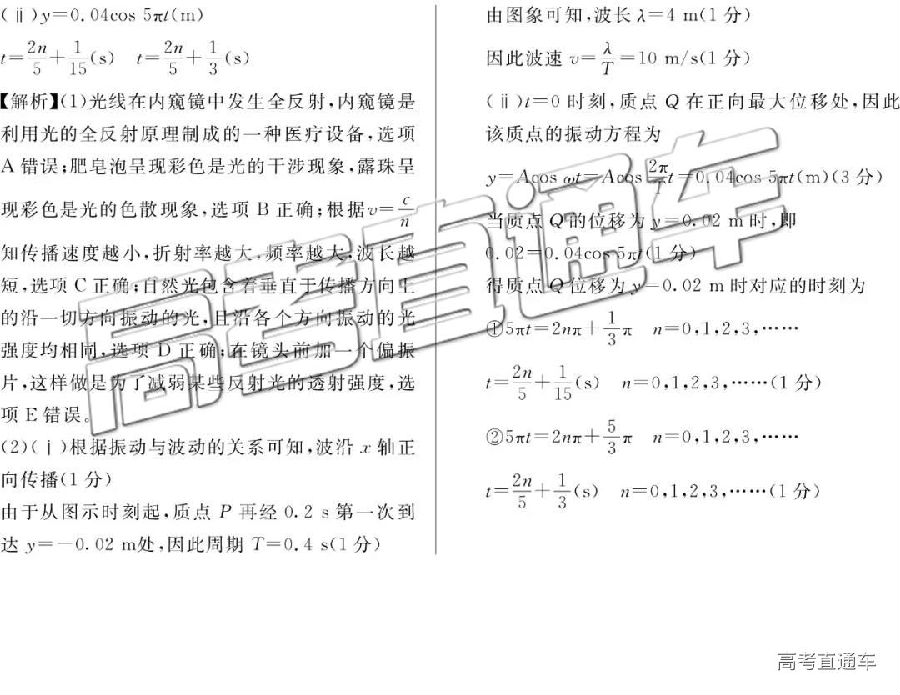 (ⅱ)y=0.04cos 5πt(m)
t=2n/5+1/15(s) t=2n/5+1/3(s)
【解析】(1)光线在内窥镜中发生全反射,内窥镜是
利用光的全反射原理制成的一种医疗设备,选项
A错误;肥皂泡呈现彩色是光的干涉现象,露珠呈
现彩色是光的色散现象,选项B正确;根据v=c/n
知传播速度越小,折射率越大,频率越大,波长越
短,选项C正确;自然光包含着垂直于传播方向上
的沿一切方向振动的光,且沿各个方向振动的光
强度均相同,选项D正确;在镜头前加一个偏振
片,这样做是为了减弱某些反射光的透射强度,选
项E错误。
(2)(ⅰ)根据振动与波动的关系可知,波沿x轴正
向传播(1分)
由于从图示时刻起,质点P再经0.2 s第一次到
达y=-0.02 m处,因此周期T=0.4 s(1分)
由图象可知,波长λ=4 m(1分)
因此波速v=λ/T=10 m/s(1分)
(ⅱ)t=0时刻,质点Q在正向最大位移处,因此
该质点的振动方程为
y=Acos ωt=Acos 2π/T t=0.04cos 5πt(m)(3分)
当质点Q的位移为y=0.02 m时,即
0.02=0.04cos 5πt(1分)
得质点Q位移为y=0.02 m时对应的时刻为
①5πt=2nπ+1/3π n=0,1,2,3,……
t=2n/5+1/15(s) n=0,1,2,3,……(1分)
②5πt=2nπ+5/3π n=0,1,2,3,……
t=2n/5+1/3(s) n=0,1,2,3,……(1分)
高考直通车
高考直通车